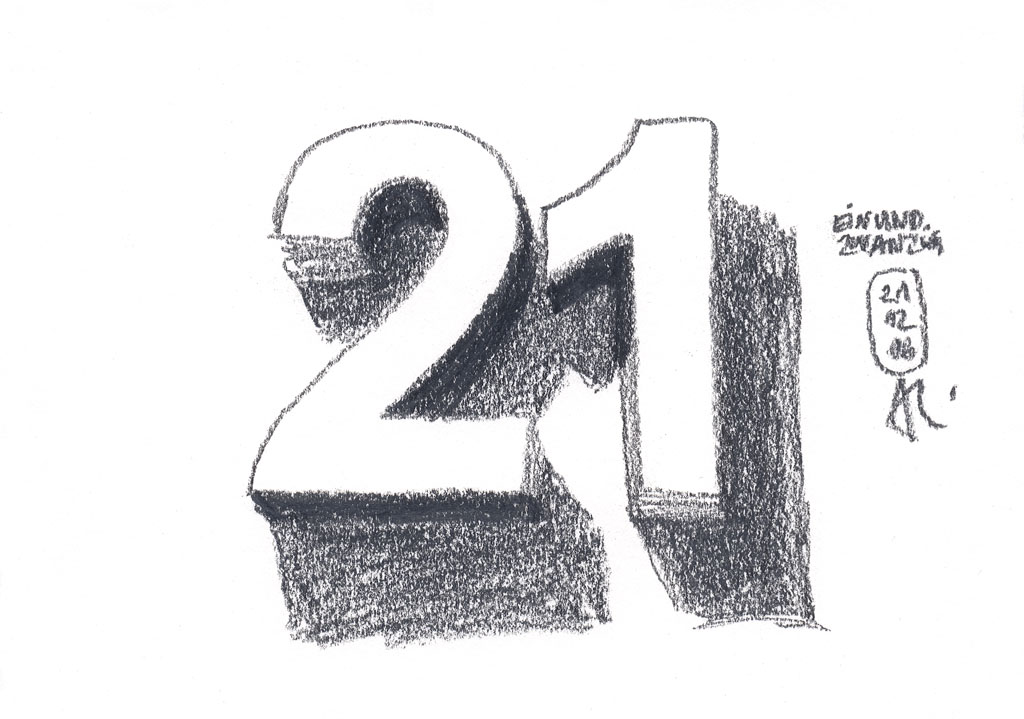 21
EINUND.
ZWANZIG
21
02
06